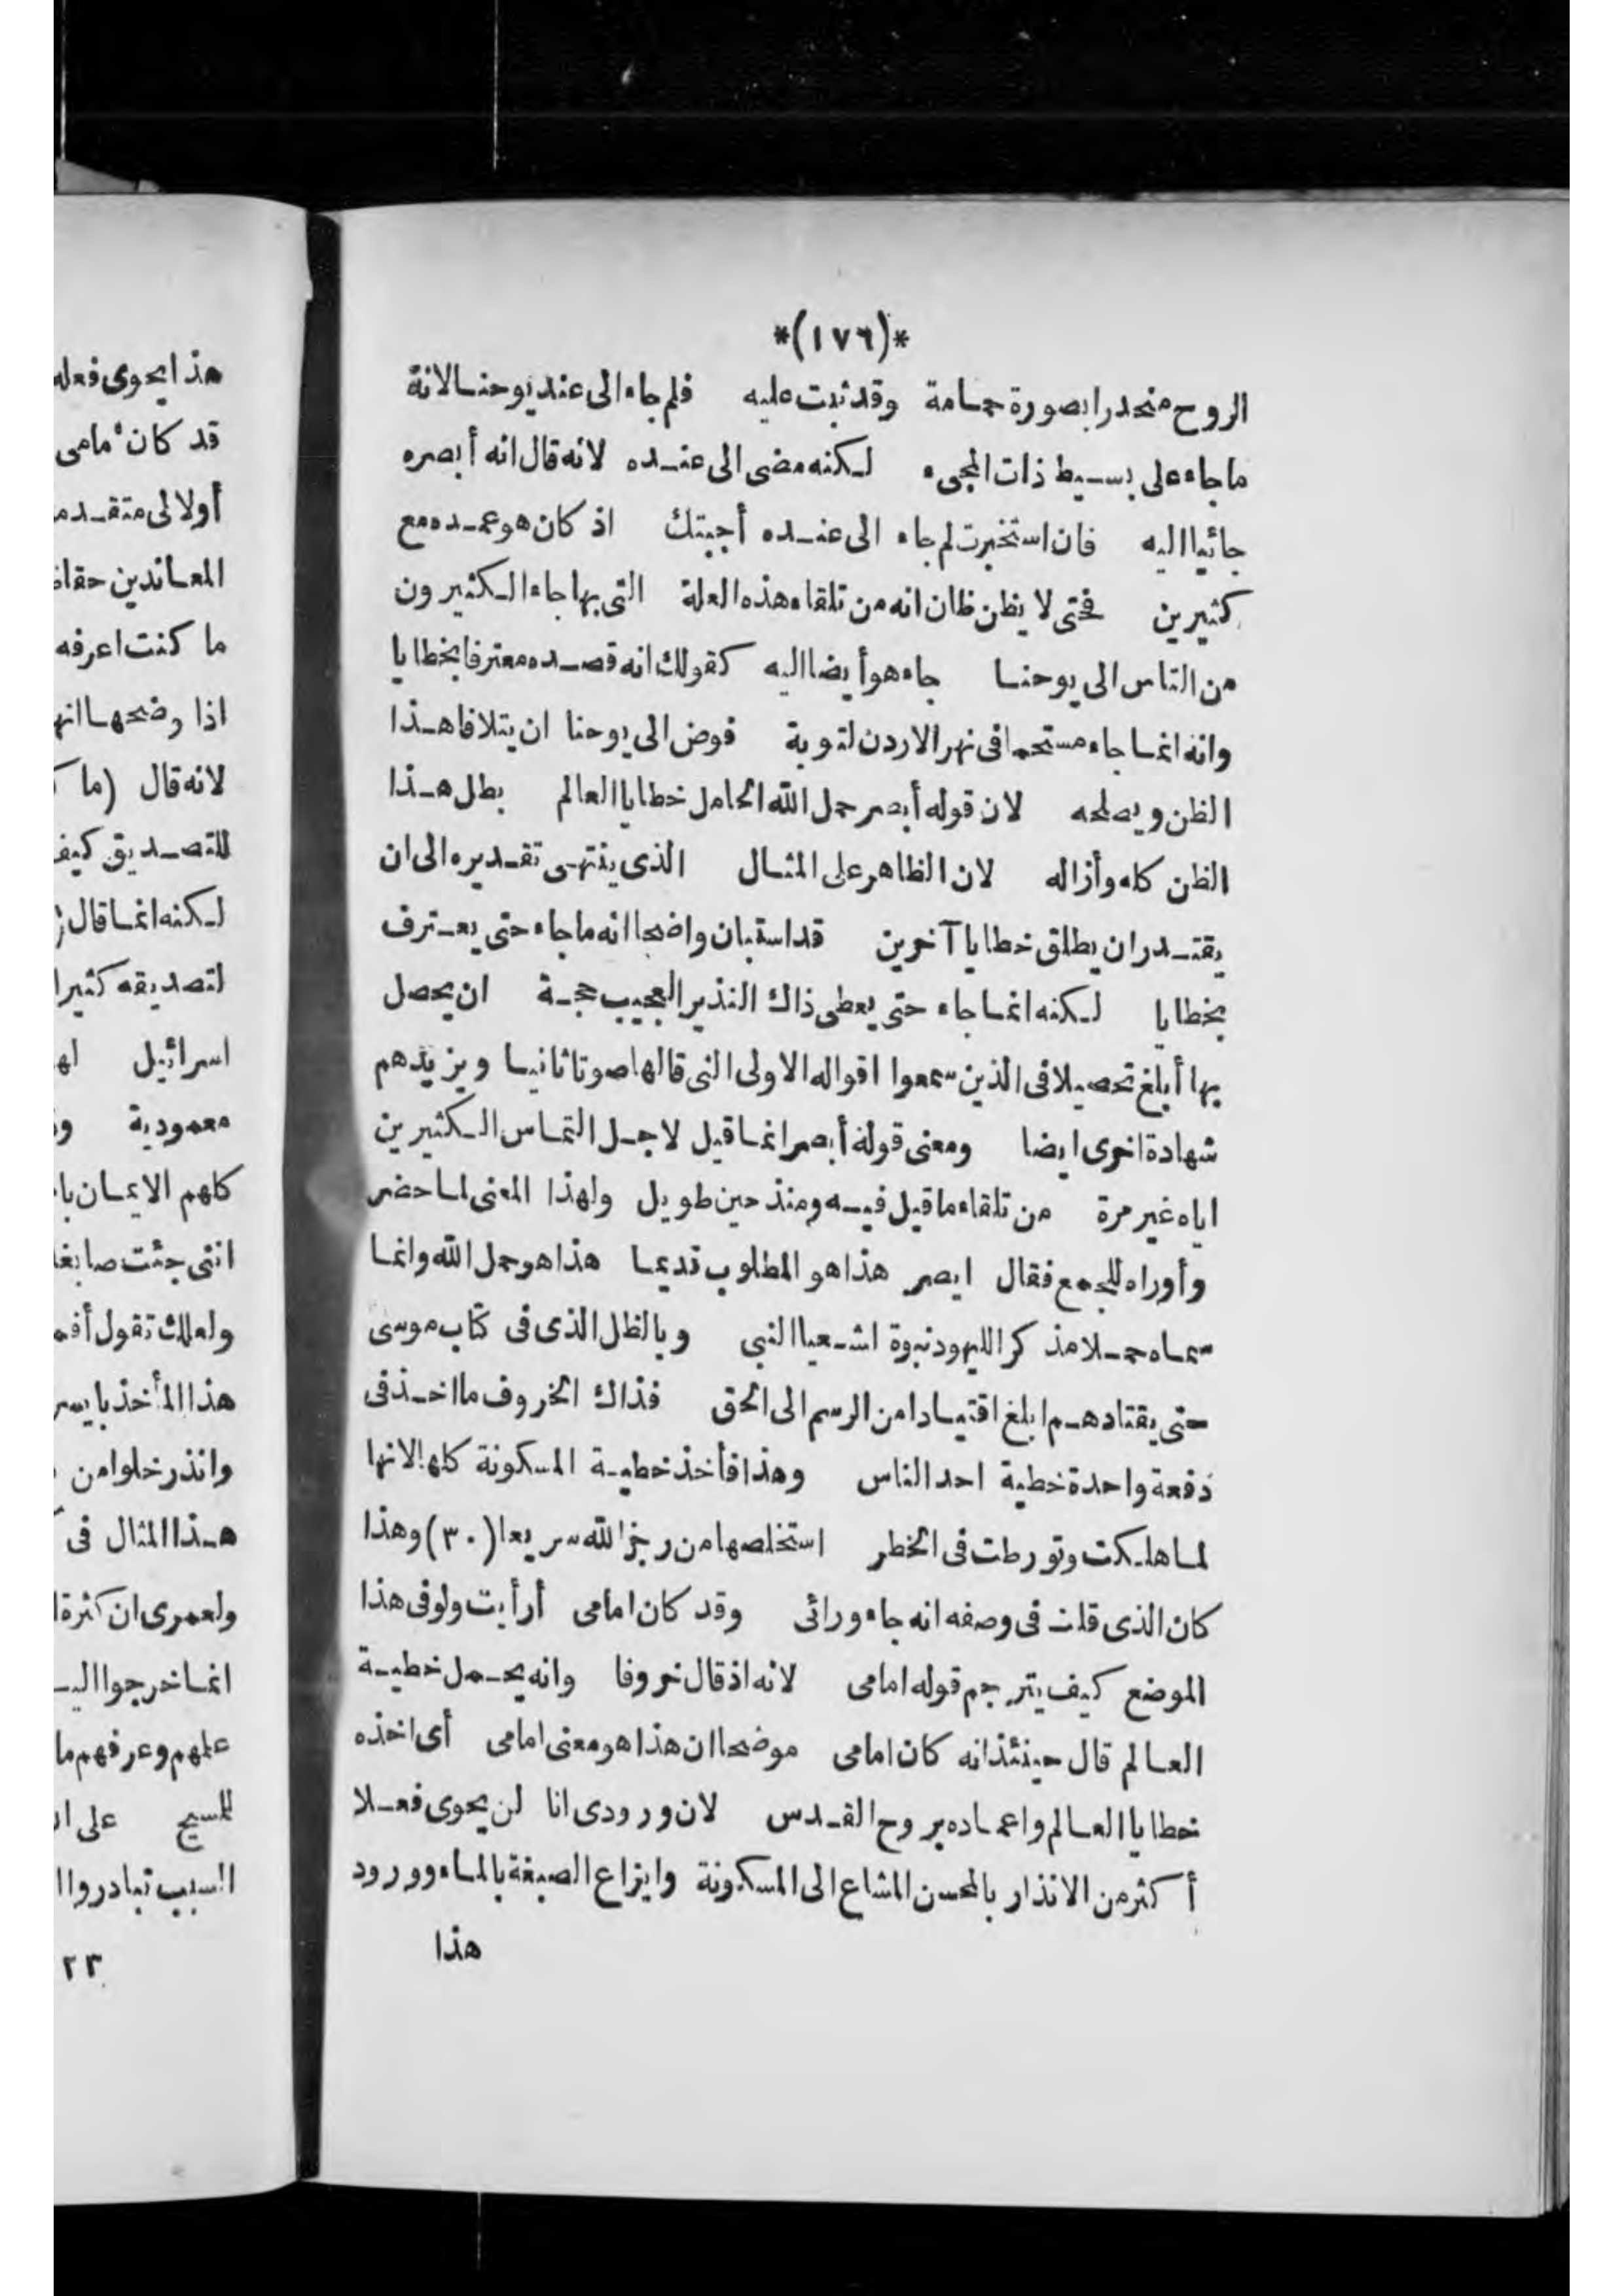 *(١٧٦)*
الروح منحدرا بصورة حمامة وقد ثبت عليه فلم جاء الى عند يوحنا لانه
ما جاء على بسيط ذات المجىء لكنه مضى الى عنده لانه قال انه أبصره
جائيا اليه فان استخبرت لم جاء الى عنده أجبتك اذ كان هو عمده مع
كثيرين فحتى لا يظن ظان انه من تلقاء هذه العلة التى بها جاء الكثيرون
من الناس الى يوحنا جاء هو أيضا اليه كقولك انه قصده معترفا بخطايا
وانه انما جاء مستحما فى نهر الاردن لتوبة فوض الى يوحنا ان يتلافا هذا
الظن ويصلحه لان قوله أبصر حمل الله الحامل خطايا العالم بطل هذا
الظن كله وأزاله لان الظاهر على المثال الذى ينتهى تقديره الى ان
يقتدر ان يطلق خطايا آخرين قد استبان واضحا انه ما جاء حتى يعترف
بخطايا لكنه انما جاء حتى يعطى ذاك النذير العجيب حجة ان يحصل
بها أبلغ تحصيلا فى الذين سمعوا اقواله الاولى التى قالها صوتا ثانيا ويزيدهم
شهادة اخرى ايضا ومعنى قوله أبصر انما قيل لاجل التماس الكثيرين
اياه غير مرة من تلقاء ما قيل فيه ومنذ حين طويل ولهذا المعنى لما حضر
وأوراه للجمع فقال ابصر هذا هو المطلوب قديما هذا هو حمل الله وانما
سماه حملا مذكر اليهود نبوة اشعيا النبى وبالظل الذى فى كتاب موسى
حتى يقتادهم ابلغ اقتيادا من الرسم الى الحق فذاك الخروف ما اخذ فى
دفعة واحدة خطية احد الناس وهذا فأخذ خطية المسكونة كلها لانها
لما هلكت وتورطت فى الخطر استخلصها من رجز الله سريعا (٣٠) وهذا
كان الذى قلت فى وصفه انه جاء ورائى وقد كان امامى أرأيت ولو فى هذا
الموضع كيف يترجم قوله امامى لانه اذ قال خروفا وانه يحمل خطية
العالم قال حينئذ انه كان امامى موضحا ان هذا هو معنى امامى أى اخذه
خطايا العالم واعماده بروح القدس لان ورودى انا لن يحوى فعلا
أكثر من الانذار بالمحسن المشاع الى المسكونة وايزاع الصبغة بالماء وورود
هذا
هذا يحوى فعله
قد كان امامى
أولا لى متقدم
المعاندين حقا
ما كنت اعرفه
اذا وضحها انه
لانه قال (ما
للتصديق كيف
لكنه انما قال
لتصديقه كثيرا
اسرائيل
معمودية
كلهم الايمان
اننى جئت صابغا
ولعلك تقول
هذا المأخذ
وانذر خلوا من
هذا المثال فى
ولعمرى ان كثرة
انما خرجوا
علمهم وعرفهم ما
للمسيح على
السبب تبادروا
٢٣